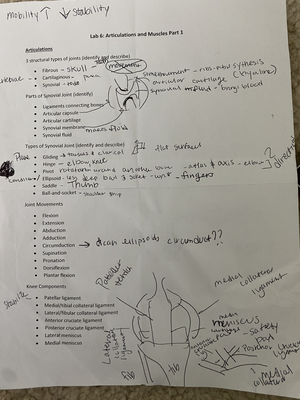 mobility ↑ ↓ stability
Lab 6: Articulations and Muscles Part 1
Articulations
3 structural types of joints (identify and describe)
Fibrous - skull
Cartilaginous -
Synovial -
movement
articular
cartilage (hyaline)
synovial
Parts of Synovial Joint (identify)
Ligaments connecting bones
Articular capsule
Articular cartilage
Synovial membrane makes fluid
Synovial fluid
Types of Synovial Joint (identify and describe)
Plane Gliding - tarsals & carpal flat surfaces
Hinge - elbow, knee
Pivot rotation around another bone - atlas & axis - elbow
Ellipsoid - ball & socket - wrist - fingers
Saddle - Thumb
Ball-and-socket - shoulder, hip
Joint Movements
Flexion
Extension
Abduction
Adduction
Circumduction → does ellipsoids circumduct??
Supination
Pronation
Dorsiflexion
Plantar flexion
Knee Components
Patellar ligament
Medial/tibial collateral ligament
Lateral/fibular collateral ligament
Anterior cruciate ligament
Posterior cruciate ligament
Lateral meniscus
Medial meniscus
Patellar
medial collateral
ligament
meniscus
Lateral
collateral
ligament
Posterior
ligament
medial
collateral
fib
tib